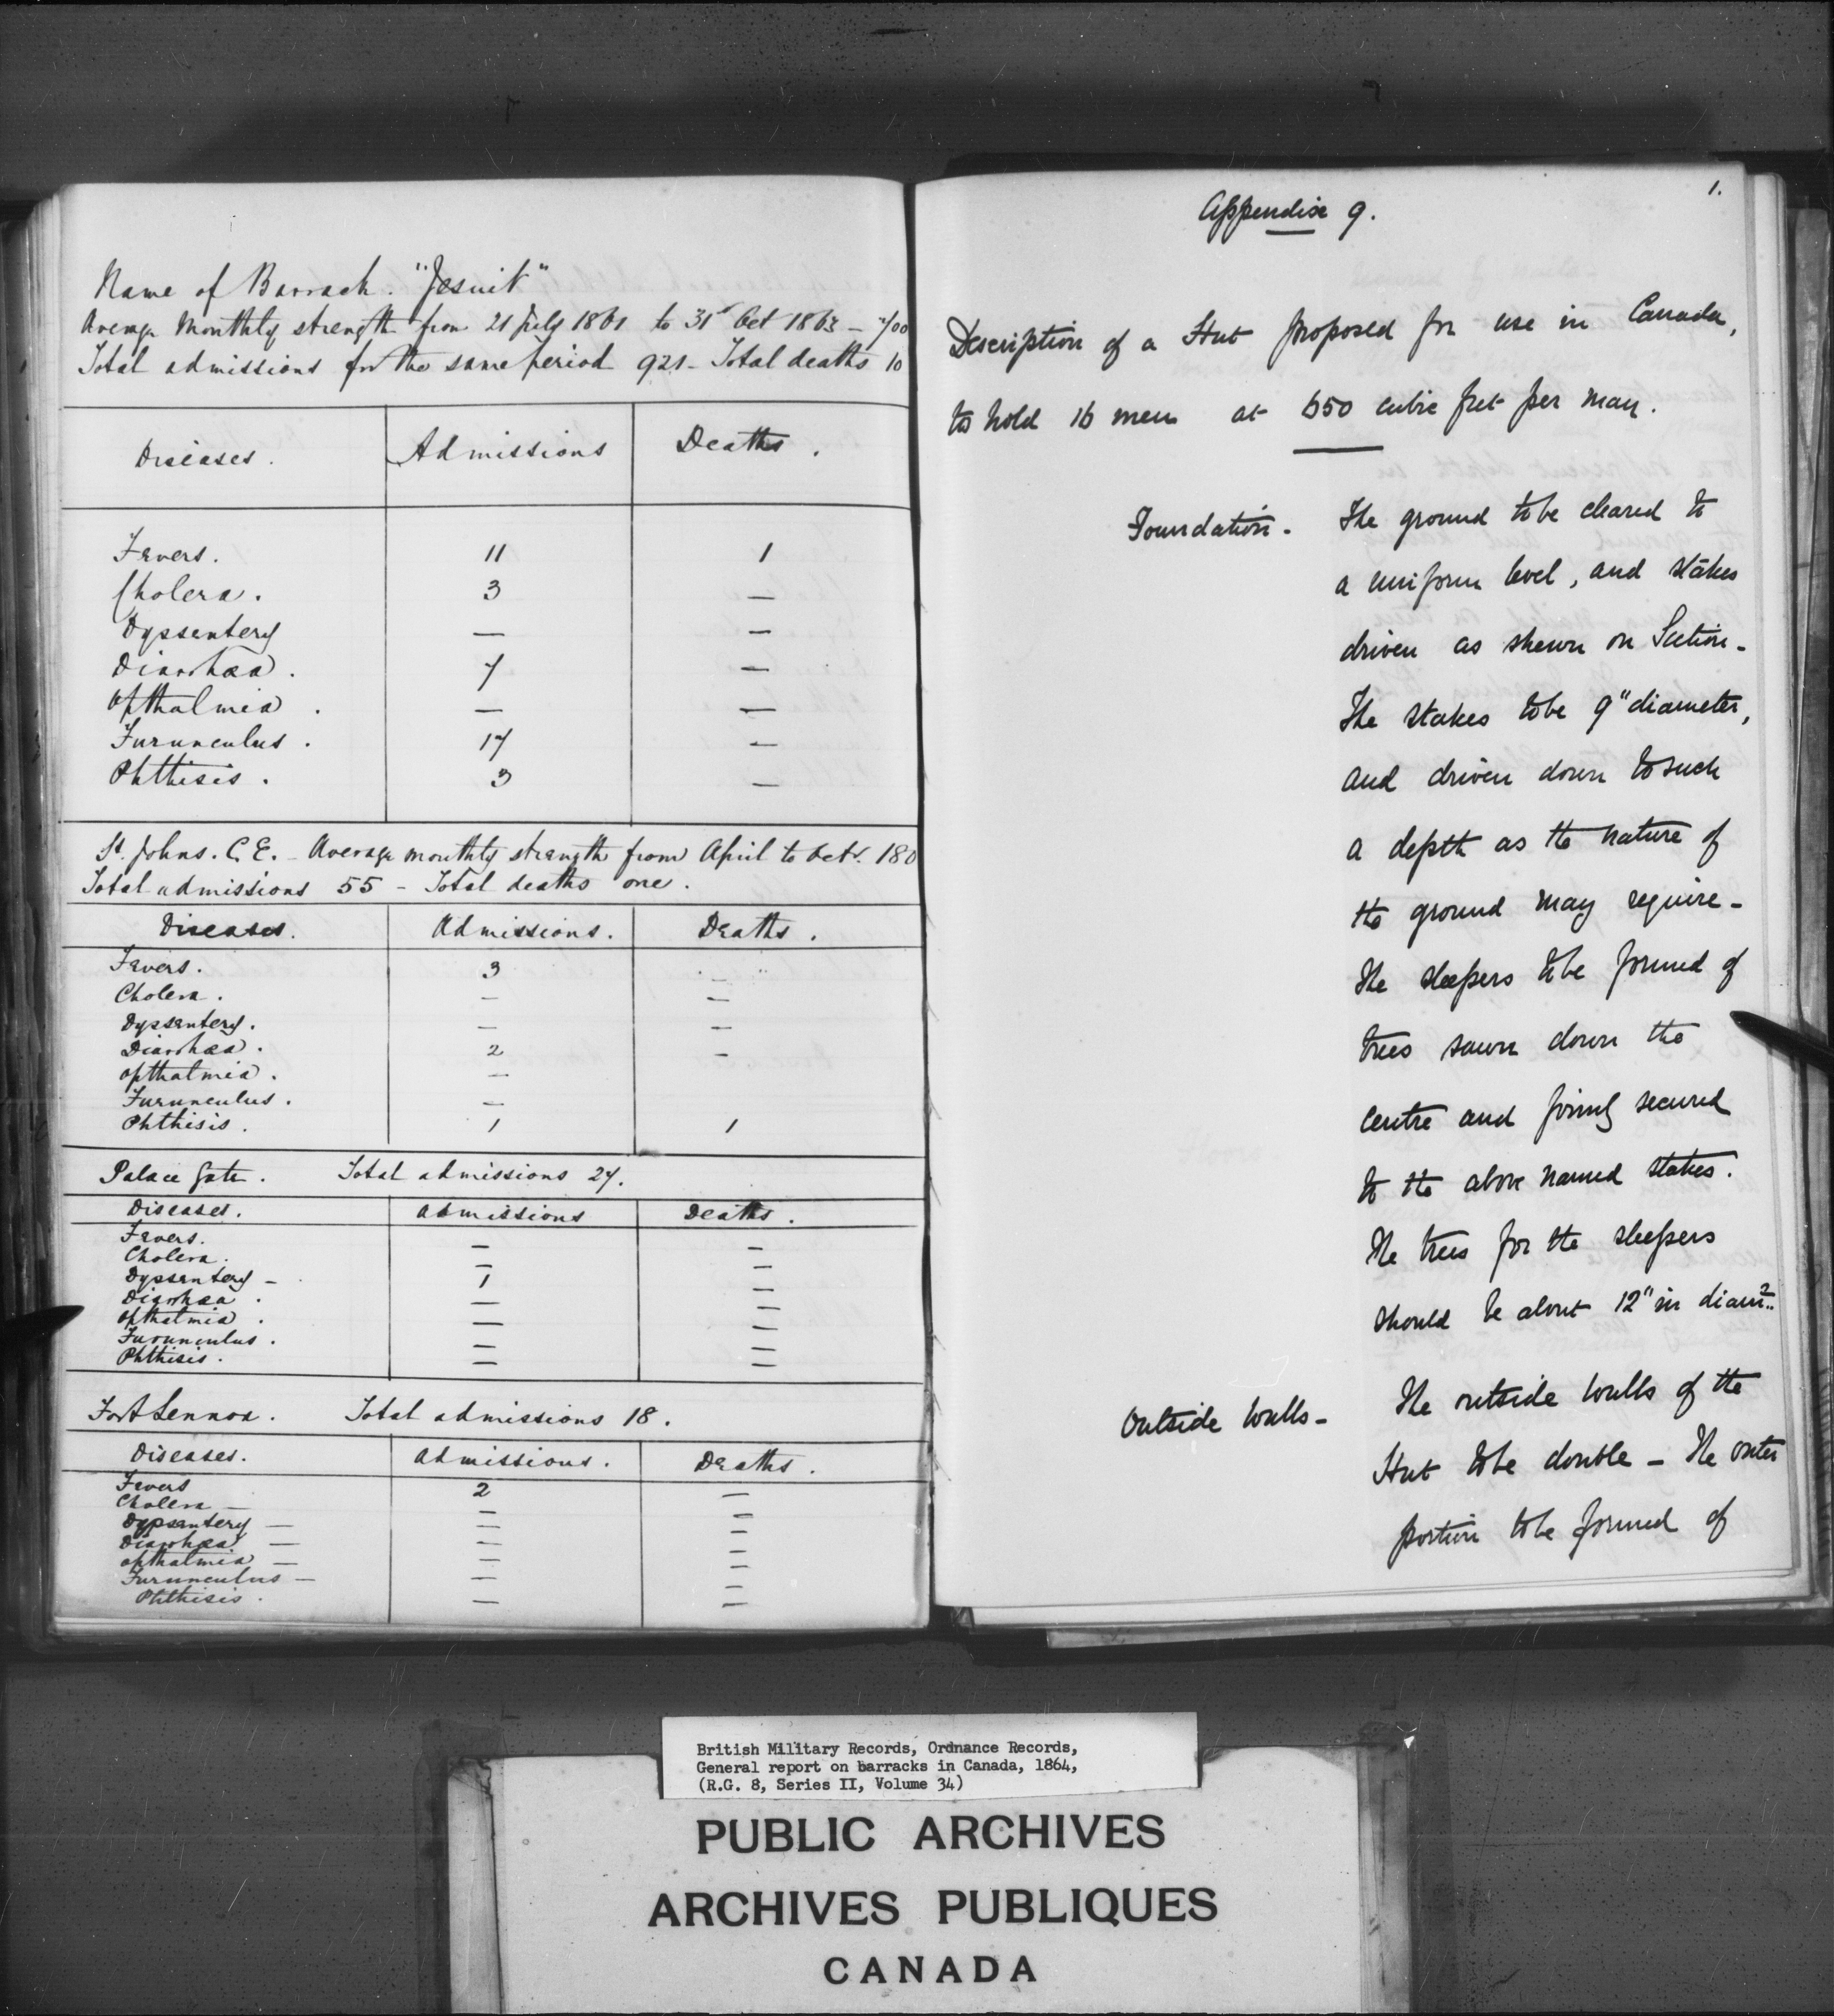 Name of Barrack. "Jesuit"
Average Monthly strength from 21 July 1861 to 31st Oct 1863 – 700
Total admissions for the same period 921 – Total deaths 10
Diseases. Admissions Deaths.
Fevers. 11 1
Cholera. 3 —
Dyssentery — —
Diarrhœa. 7 —
Opthalmia. — —
Furunculus. 17 —
Phthisis. 3 —
St. Johns. C.E. – Average monthly strength from April to Octr. 180
Total admissions 55 – Total deaths one.
Diseases. Admissions. Deaths.
Fevers. 3 —
Cholera. — —
Dyssentery. — —
Diarrhœa. 2 —
Opthalmia. —
Furunculus. —
Phthisis. 1 1
Palace Gate. Total admissions 27.
Diseases. Admissions Deaths.
Fevers. — —
Cholera. — —
Dyssentery – 1 —
Diarrhœa. — —
Opthalmia. — —
Furunculus. — —
Phthisis. — —
Fort Lennox. Total admissions 18.
Diseases. Admissions. Deaths.
Fevers 2 —
Cholera – — —
Dyssentery — — —
Diarrhœa — — —
Opthalmia — — —
Furunculus — — —
Phthisis. — —
1.
Appendix 9.
Description of a Hut proposed for use in Canada,
to hold 16 men at 650 cubic feet per man.
Foundation. The ground to be cleared to
a uniform level, and stakes
driven as shewn on Section –
The stakes to be 9" diameter,
and driven down to such
a depth as the nature of
the ground may require –
The sleepers to be formed of
trees sawn down the
centre and firmly secured
to the above named stakes.
The trees for the sleepers
should be about 12" in diamr.
Outside Walls – The outside walls of the
Hut to be double – The outer
portion to be formed of
British Military Records, Ordnance Records,
General report on barracks in Canada, 1864,
(R.G. 8, Series II, Volume 34)
PUBLIC ARCHIVES
ARCHIVES PUBLIQUES
CANADA